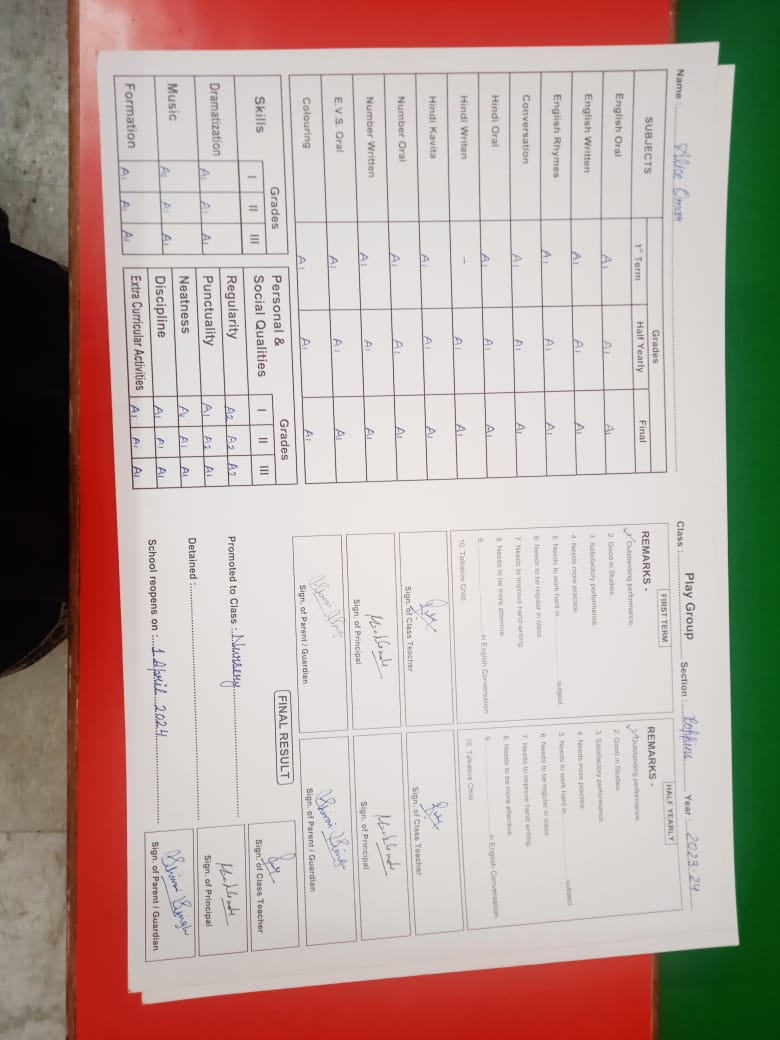 Name : Alice Omar
SUBJECTS Grades
1st Term Half Yearly Final
English Oral A1 A1 A1
English Written A1 A1 A1
English Rhymes A1 A1 A1
Conversation A1 A1 A1
Hindi Oral A1 A1 A1
Hindi Writen - A1 A1
Hindi Kavita A1 A1 A1
Number Oral A1 A1 A1
Number Written A1 A1 A1
E.V.S. Oral A1 A1 A1
Colouring A1 A1 A1
Skills Grades
I II III
Dramatization A1 A1 A1
Music A1 A1 A1
Formation A1 A1 A1
Personal & Social Qualities Grades
I II III
Regularity A2 A2 A2
Punctuality A1 A2 A1
Neatness A1 A1 A1
Discipline A1 A1 A1
Extra Curricular Activities A1 A1 A1
Class : Play Group Section : Year : 2023-24
FIRST TERM
REMARKS -
1. Outstanding performance.
2. Good in Studies.
3. Satisfactory performance.
4. Needs more practice.
5. Needs to work hard in subject.
6. Needs to be regular in class.
7. Needs to improve hand writing
8. Needs to be more attentive.
9. in English Conversation
10. Talkative Child
Sign. of Class Teacher
Sign. of Principal
Sign. of Parent / Guardian
HALF YEARLY
REMARKS -
1. Outstanding performance.
2. Good in Studies.
3. Satisfactory performance.
4. Needs more practice.
5. Needs to work hard in subject.
6. Needs to be regular in class.
7. Needs to improve hand writing
8. Needs to be more attentive.
9. in English Conversation
10. Talkative Child
Sign. of Class Teacher
Sign. of Principal
Sign. of Parent / Guardian
FINAL RESULT
Promoted to Class : Nursery
Detained :
School reopens on : 1 April 2024
Sign. of Class Teacher
Sign. of Principal
Sign. of Parent / Guardian